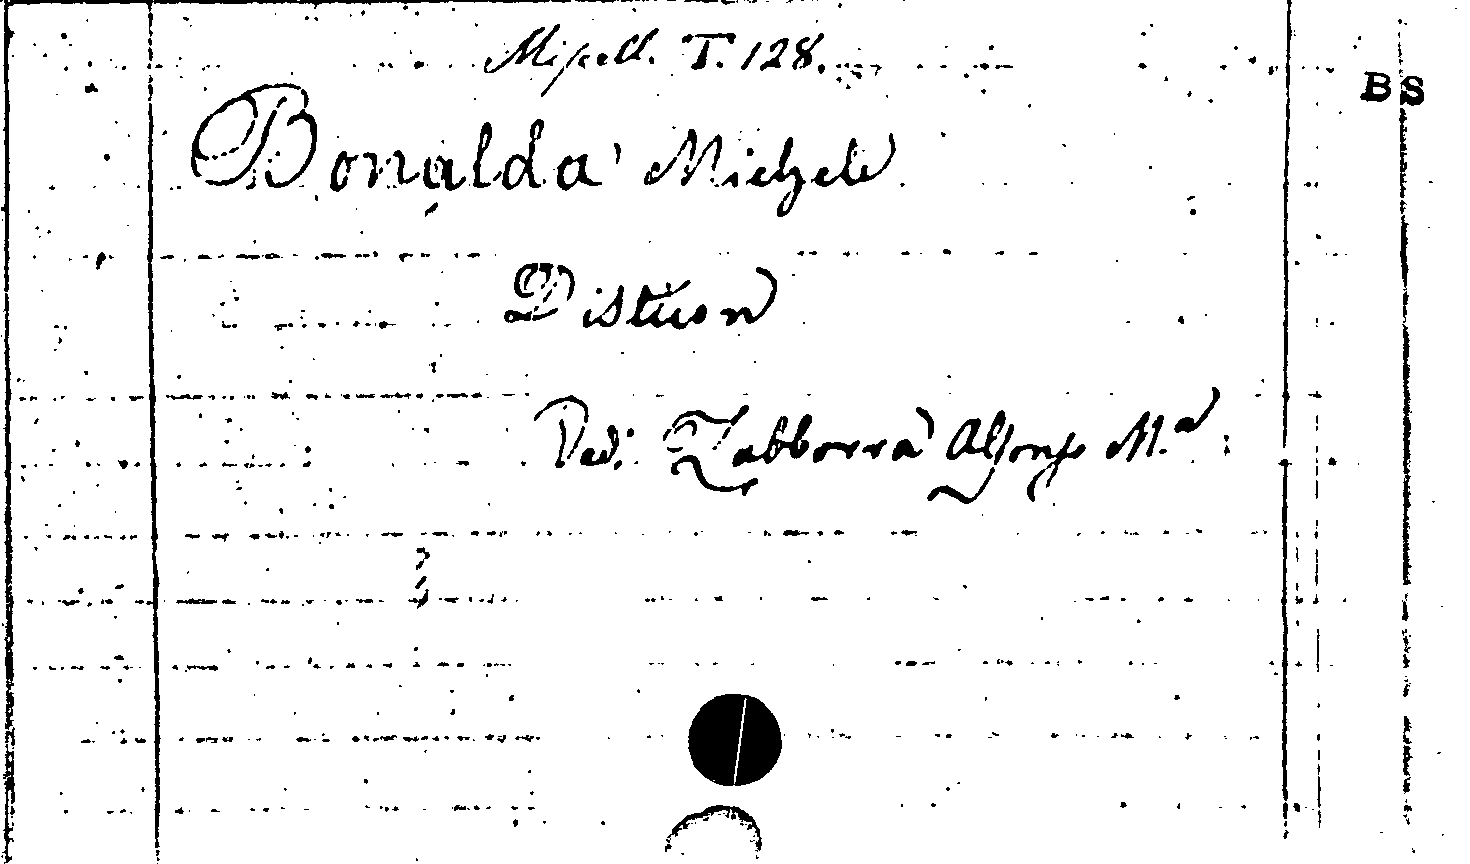 Miscell. T. 128.
BS
Bonalda Michele
Distico
Ved: Zabborra Alfonso M.a